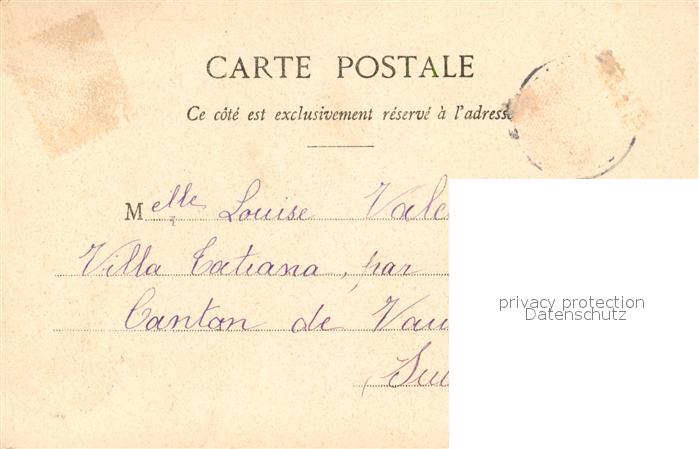 CARTE POSTALE
Ce côté est exclusivement réservé à l'adresse
Melle Louise
Villa Tatiana, par
Canton de
privacy protection
Datenschutz